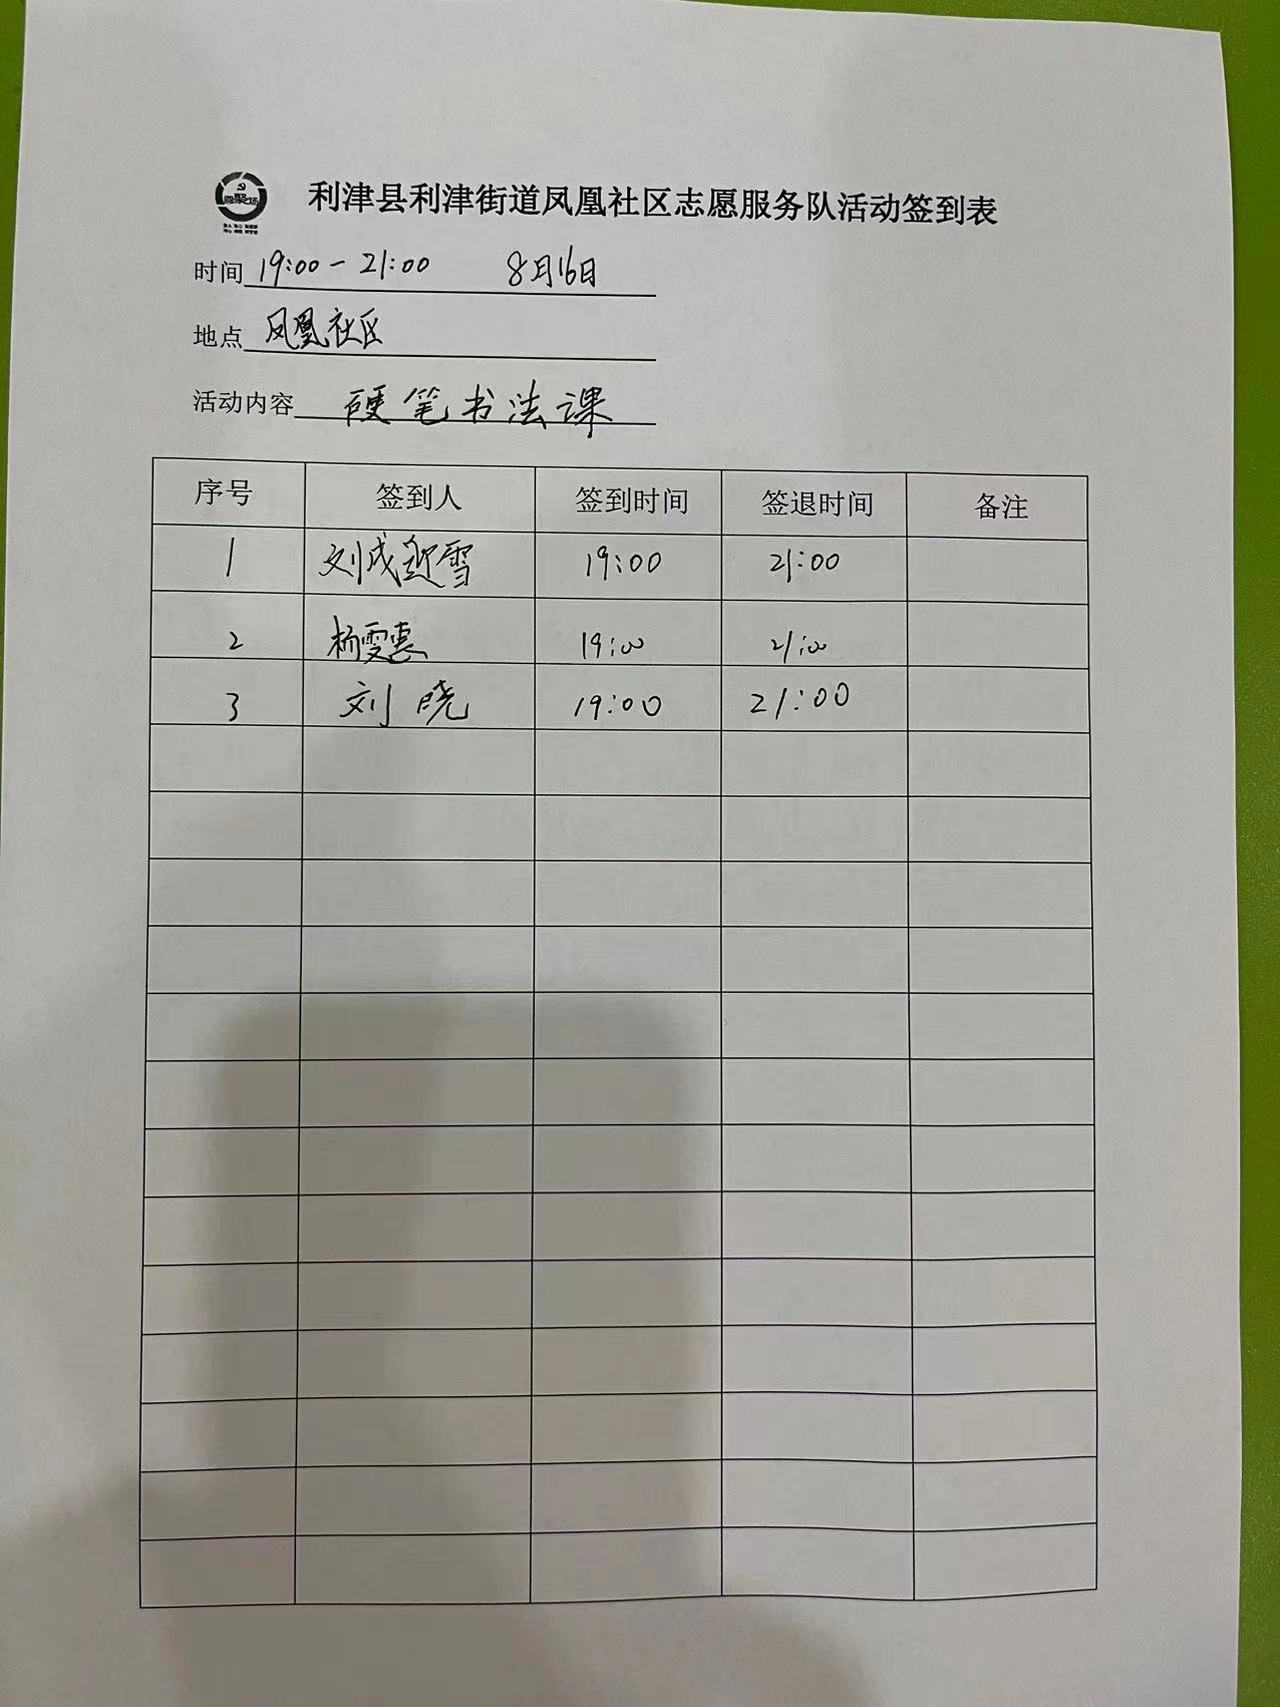 利津县利津街道凤凰社区志愿服务队活动签到表
时间 19:00-21:00 8月16日
地点 凤凰社区
活动内容 硬笔书法课
序号 签到人 签到时间 签退时间 备注
1 刘成迎雪 19:00 21:00
2 杨雯惠 19:00 21:00
3 刘晓 19:00 21:00